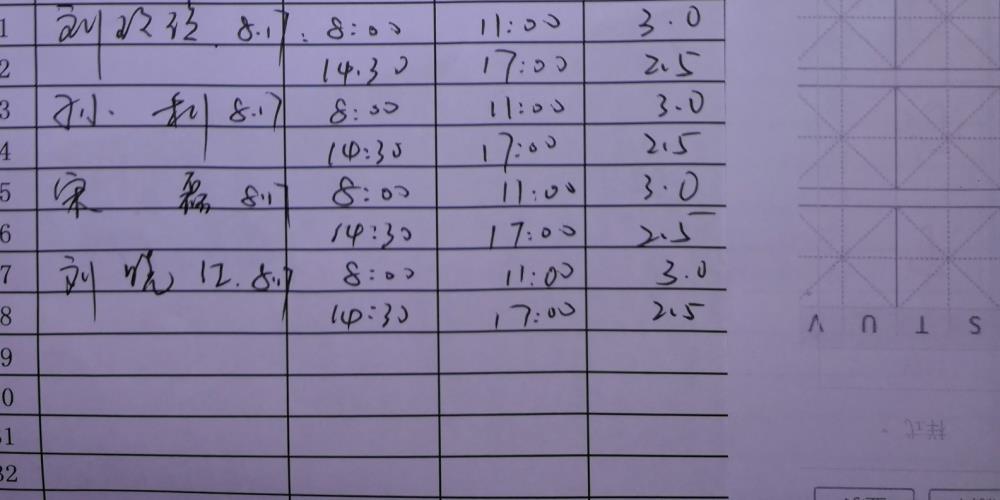 1 刘 8.17. 8:00 11:00 3.0
2 14.30 17:00 2.5
3 孙 利 8.17 8:00 11:00 3.0
4 14:30 17:00 2.5
5 宋 磊 8.17 8:00 11:00 3.0
6 14:30 17:00 2.5
7 刘 晓 江. 8.17 8:00 11:00 3.0
8 14:30 17:00 2.5
9
0
31
32
V U T S